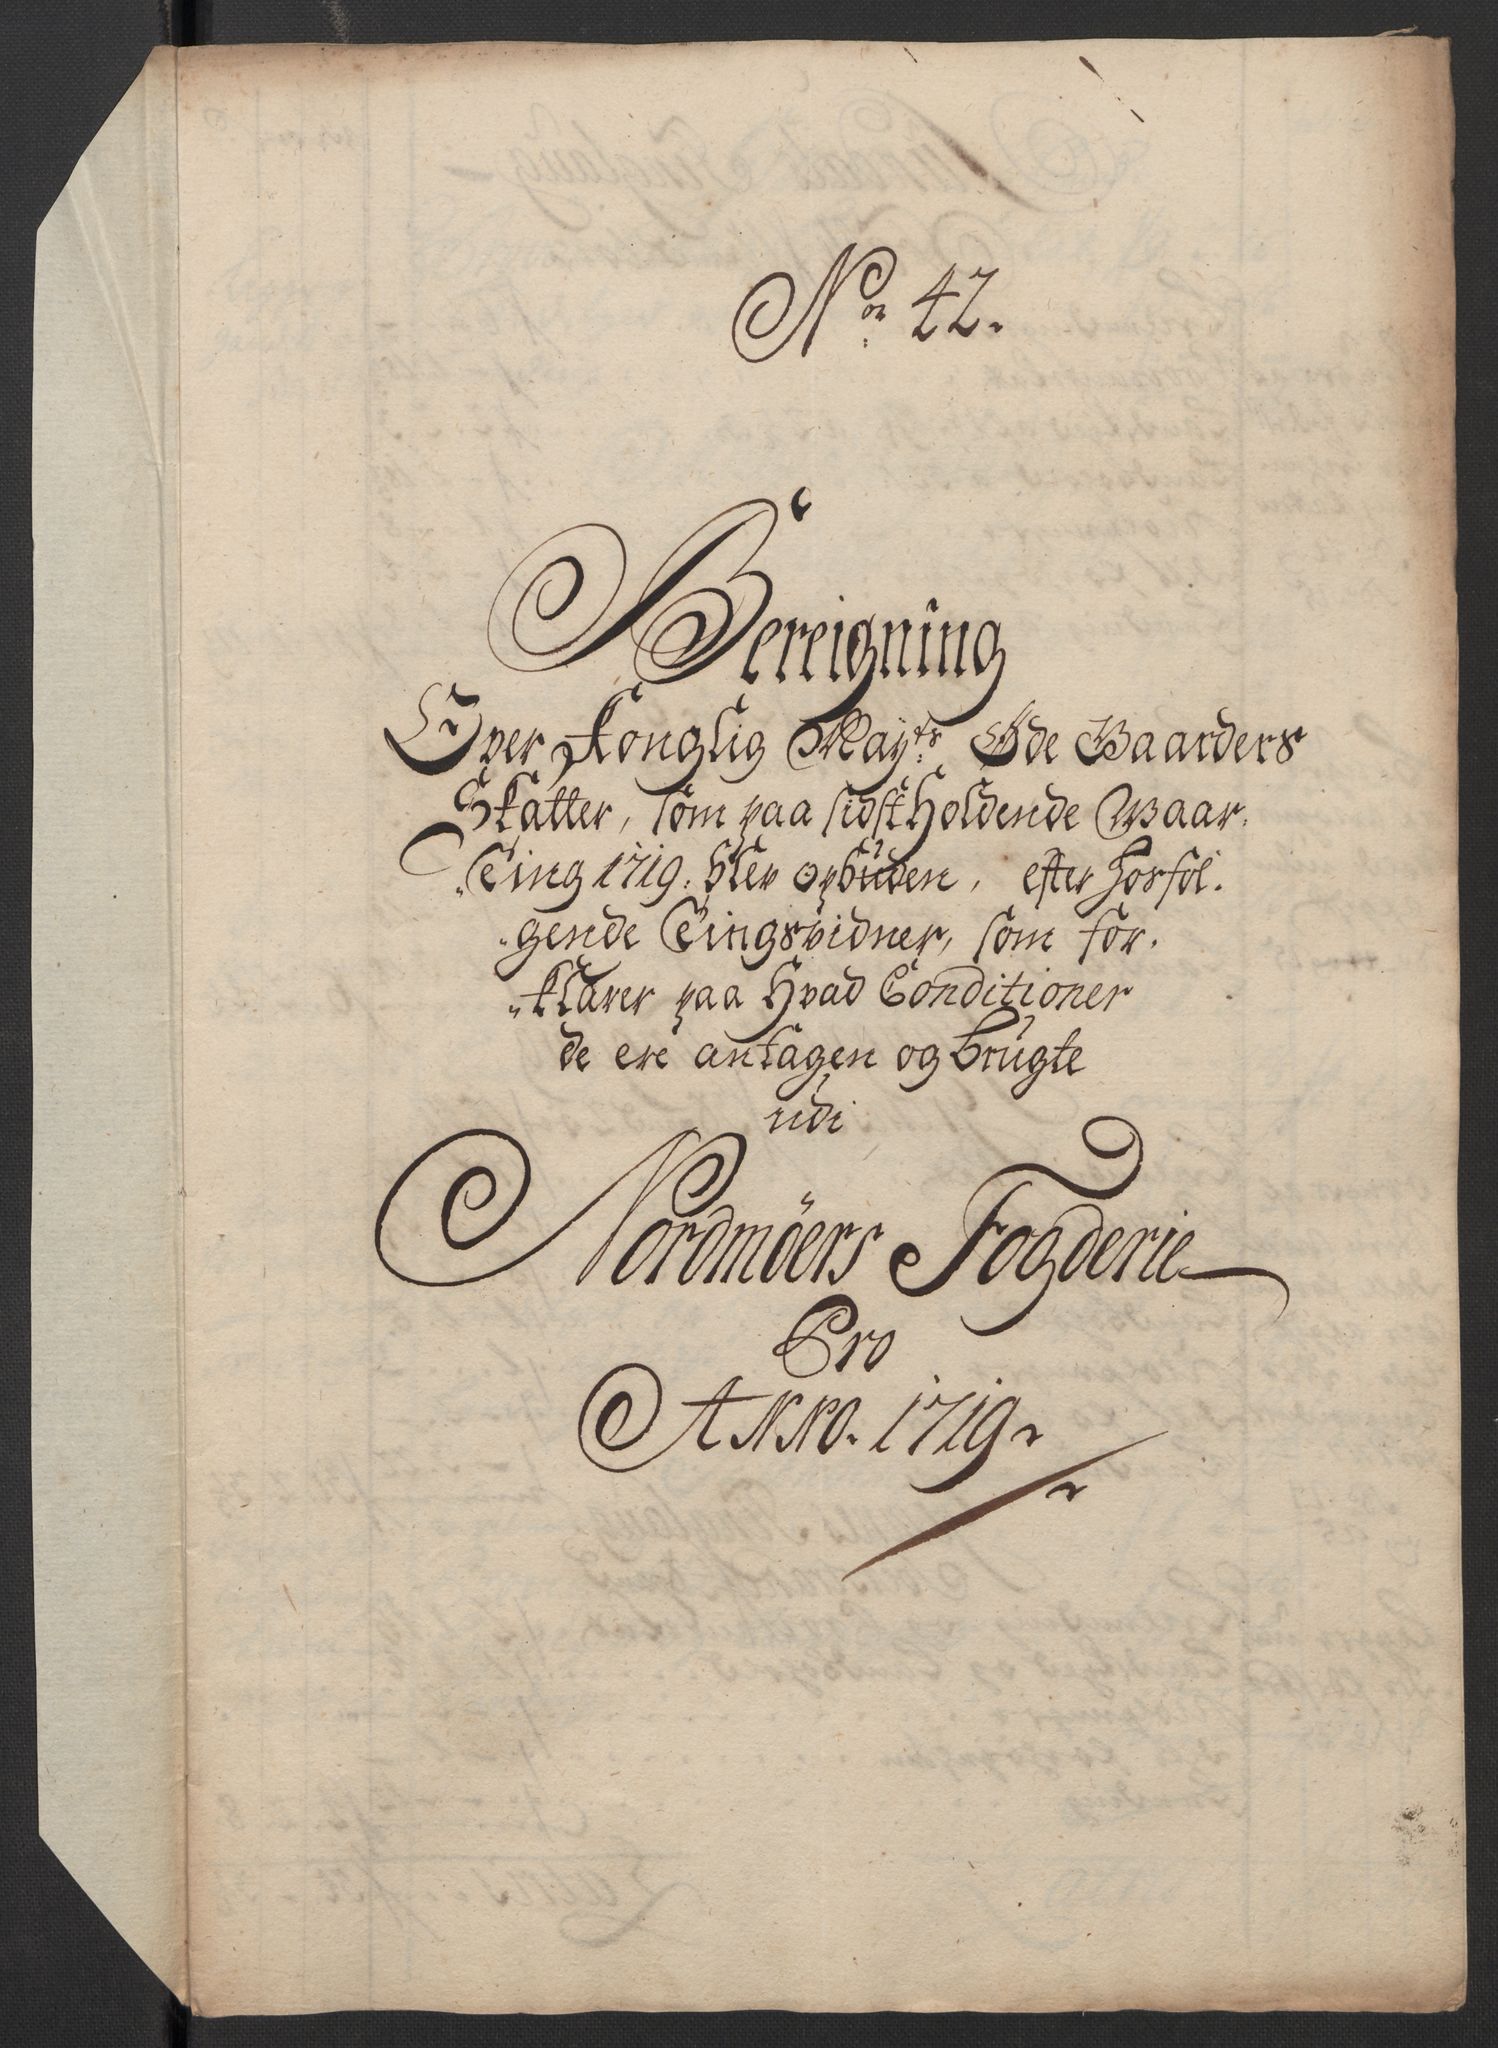 No 42.
Bereigning
Over Konglig Mayts Øde Gaarders
Skatter, som paa sidst Holdende Waar„
„Ting 1719. blev opbuden, efter hosføl„
„gende Tingsvidner, som for„
„klarer paa Hvad Conditioner
de ere antagen og brugte
udi
Nordmöers Fogderie
Pro
ANNO. 1719